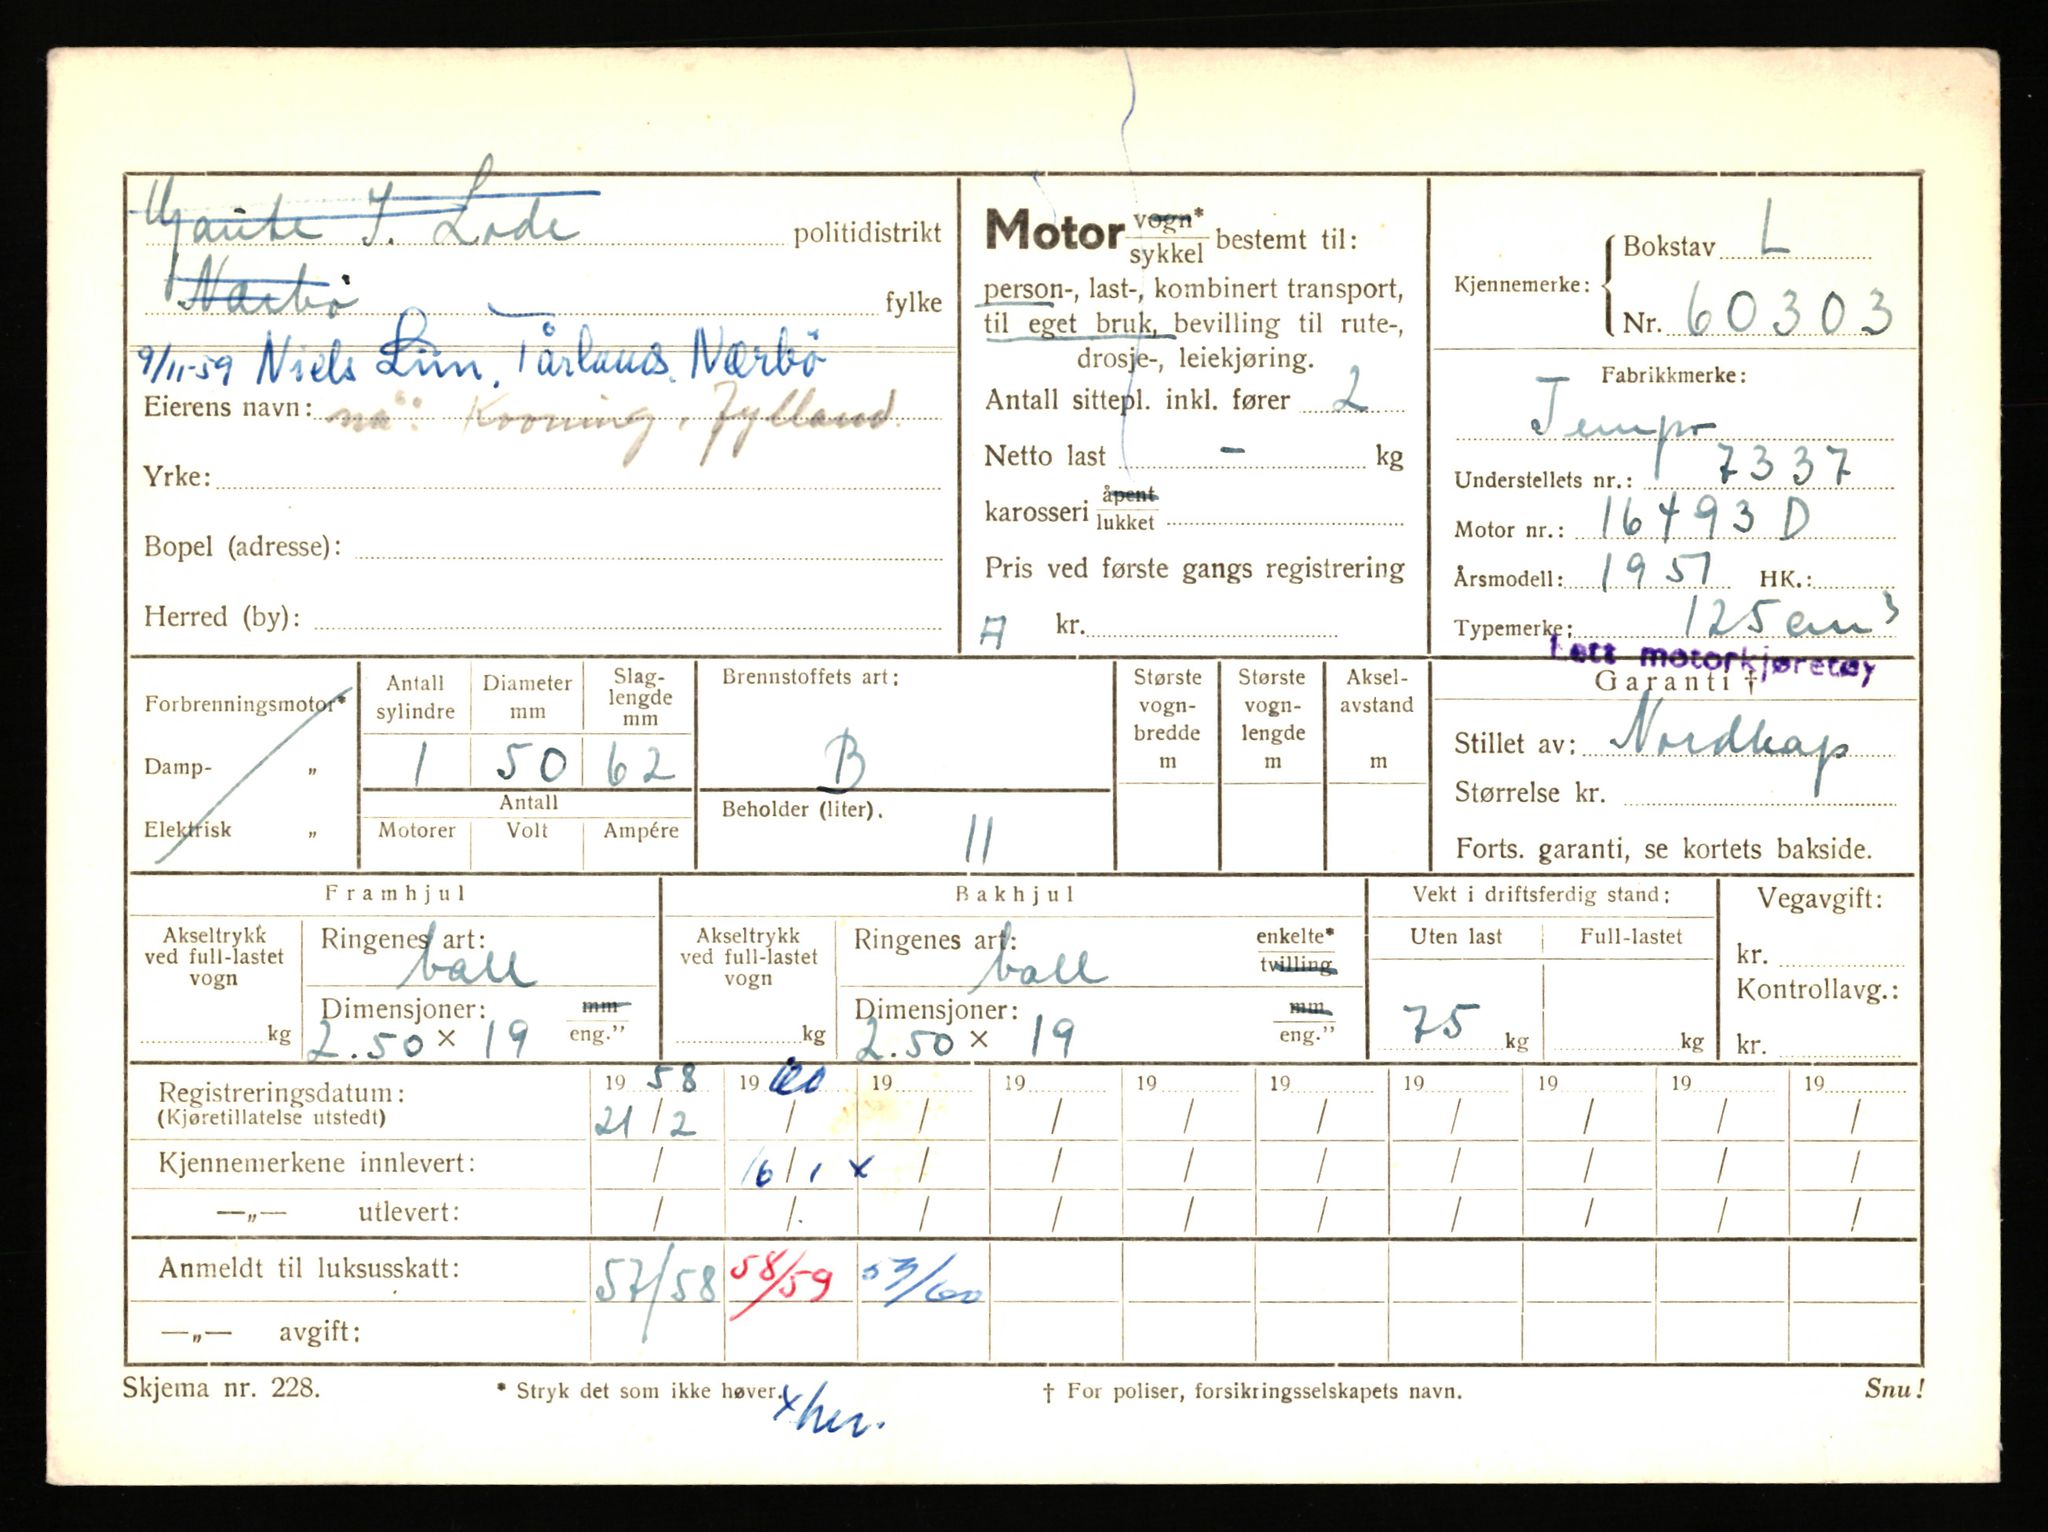 J. Lode politidistrikt
Nærbø fylke
9/11-59 Niels Lim, Tårland, Nærbö
Eierens navn: nå: Jylland.
Yrke:
Bopel (adresse):
Herred (by):
Motor vogn*/sykkel bestemt til:
person-, last-, kombinert transport,
til eget bruk, bevilling til rute-,
drosje-, leiekjøring.
Antall sittepl. inkl. fører 2
Netto last - kg
karosseri åpent/lukket
Pris ved første gangs registrering
A kr.
Kjennemerke: Bokstav L
Nr. 60303
Fabrikkmerke:
Tempo
Understellets nr.: 7337
Motor nr.: 16493 D
Årsmodell: 1957 HK.:
Typemerke: 125 cm3
Lett motorkjøretøy
Forbrenningsmotor*
Damp- „
Elektrisk „
Antall sylindre 1
Diameter mm 50
Slaglengde mm 62
Antall
Motorer Volt Ampére
Brennstoffets art: B
Beholder (liter). 11
Største vognbredde m
Største vognlengde m
Akselavstand m
Garanti †
Stillet av: Nordkap
Størrelse kr.
Forts. garanti, se kortets bakside.
Framhjul
Akseltrykk ved full-lastet vogn kg
Ringenes art: ball
Dimensjoner: mm/eng.”
2.50 × 19
Bakhjul
Akseltrykk ved full-lastet vogn kg
Ringenes art: ball enkelte*/tvilling
Dimensjoner: mm/eng.”
2.50 × 19
Vekt i driftsferdig stand:
Uten last Full-lastet
75 kg kg
Vegavgift:
kr.
Kontrollavg.:
kr.
Registreringsdatum: 19 58 19 60 19 19 19 19 19 19 19 19
(Kjøretillatelse utstedt) 21/2 / / / / / / / / /
Kjennemerkene innlevert: / 16/1 x / / / / / / / /
—„— utlevert: / / / / / / / / / /
Anmeldt til luksusskatt: 57/58 58/59 59/60
—„— avgift:
Skjema nr. 228. * Stryk det som ikke høver. † For poliser, forsikringsselskapets navn. Snu!
x her.